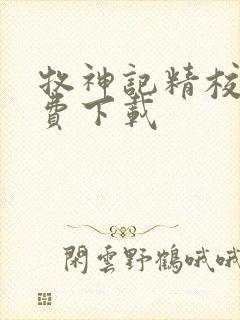 牧神記精校
費下載
閑雲野鶴哦哦